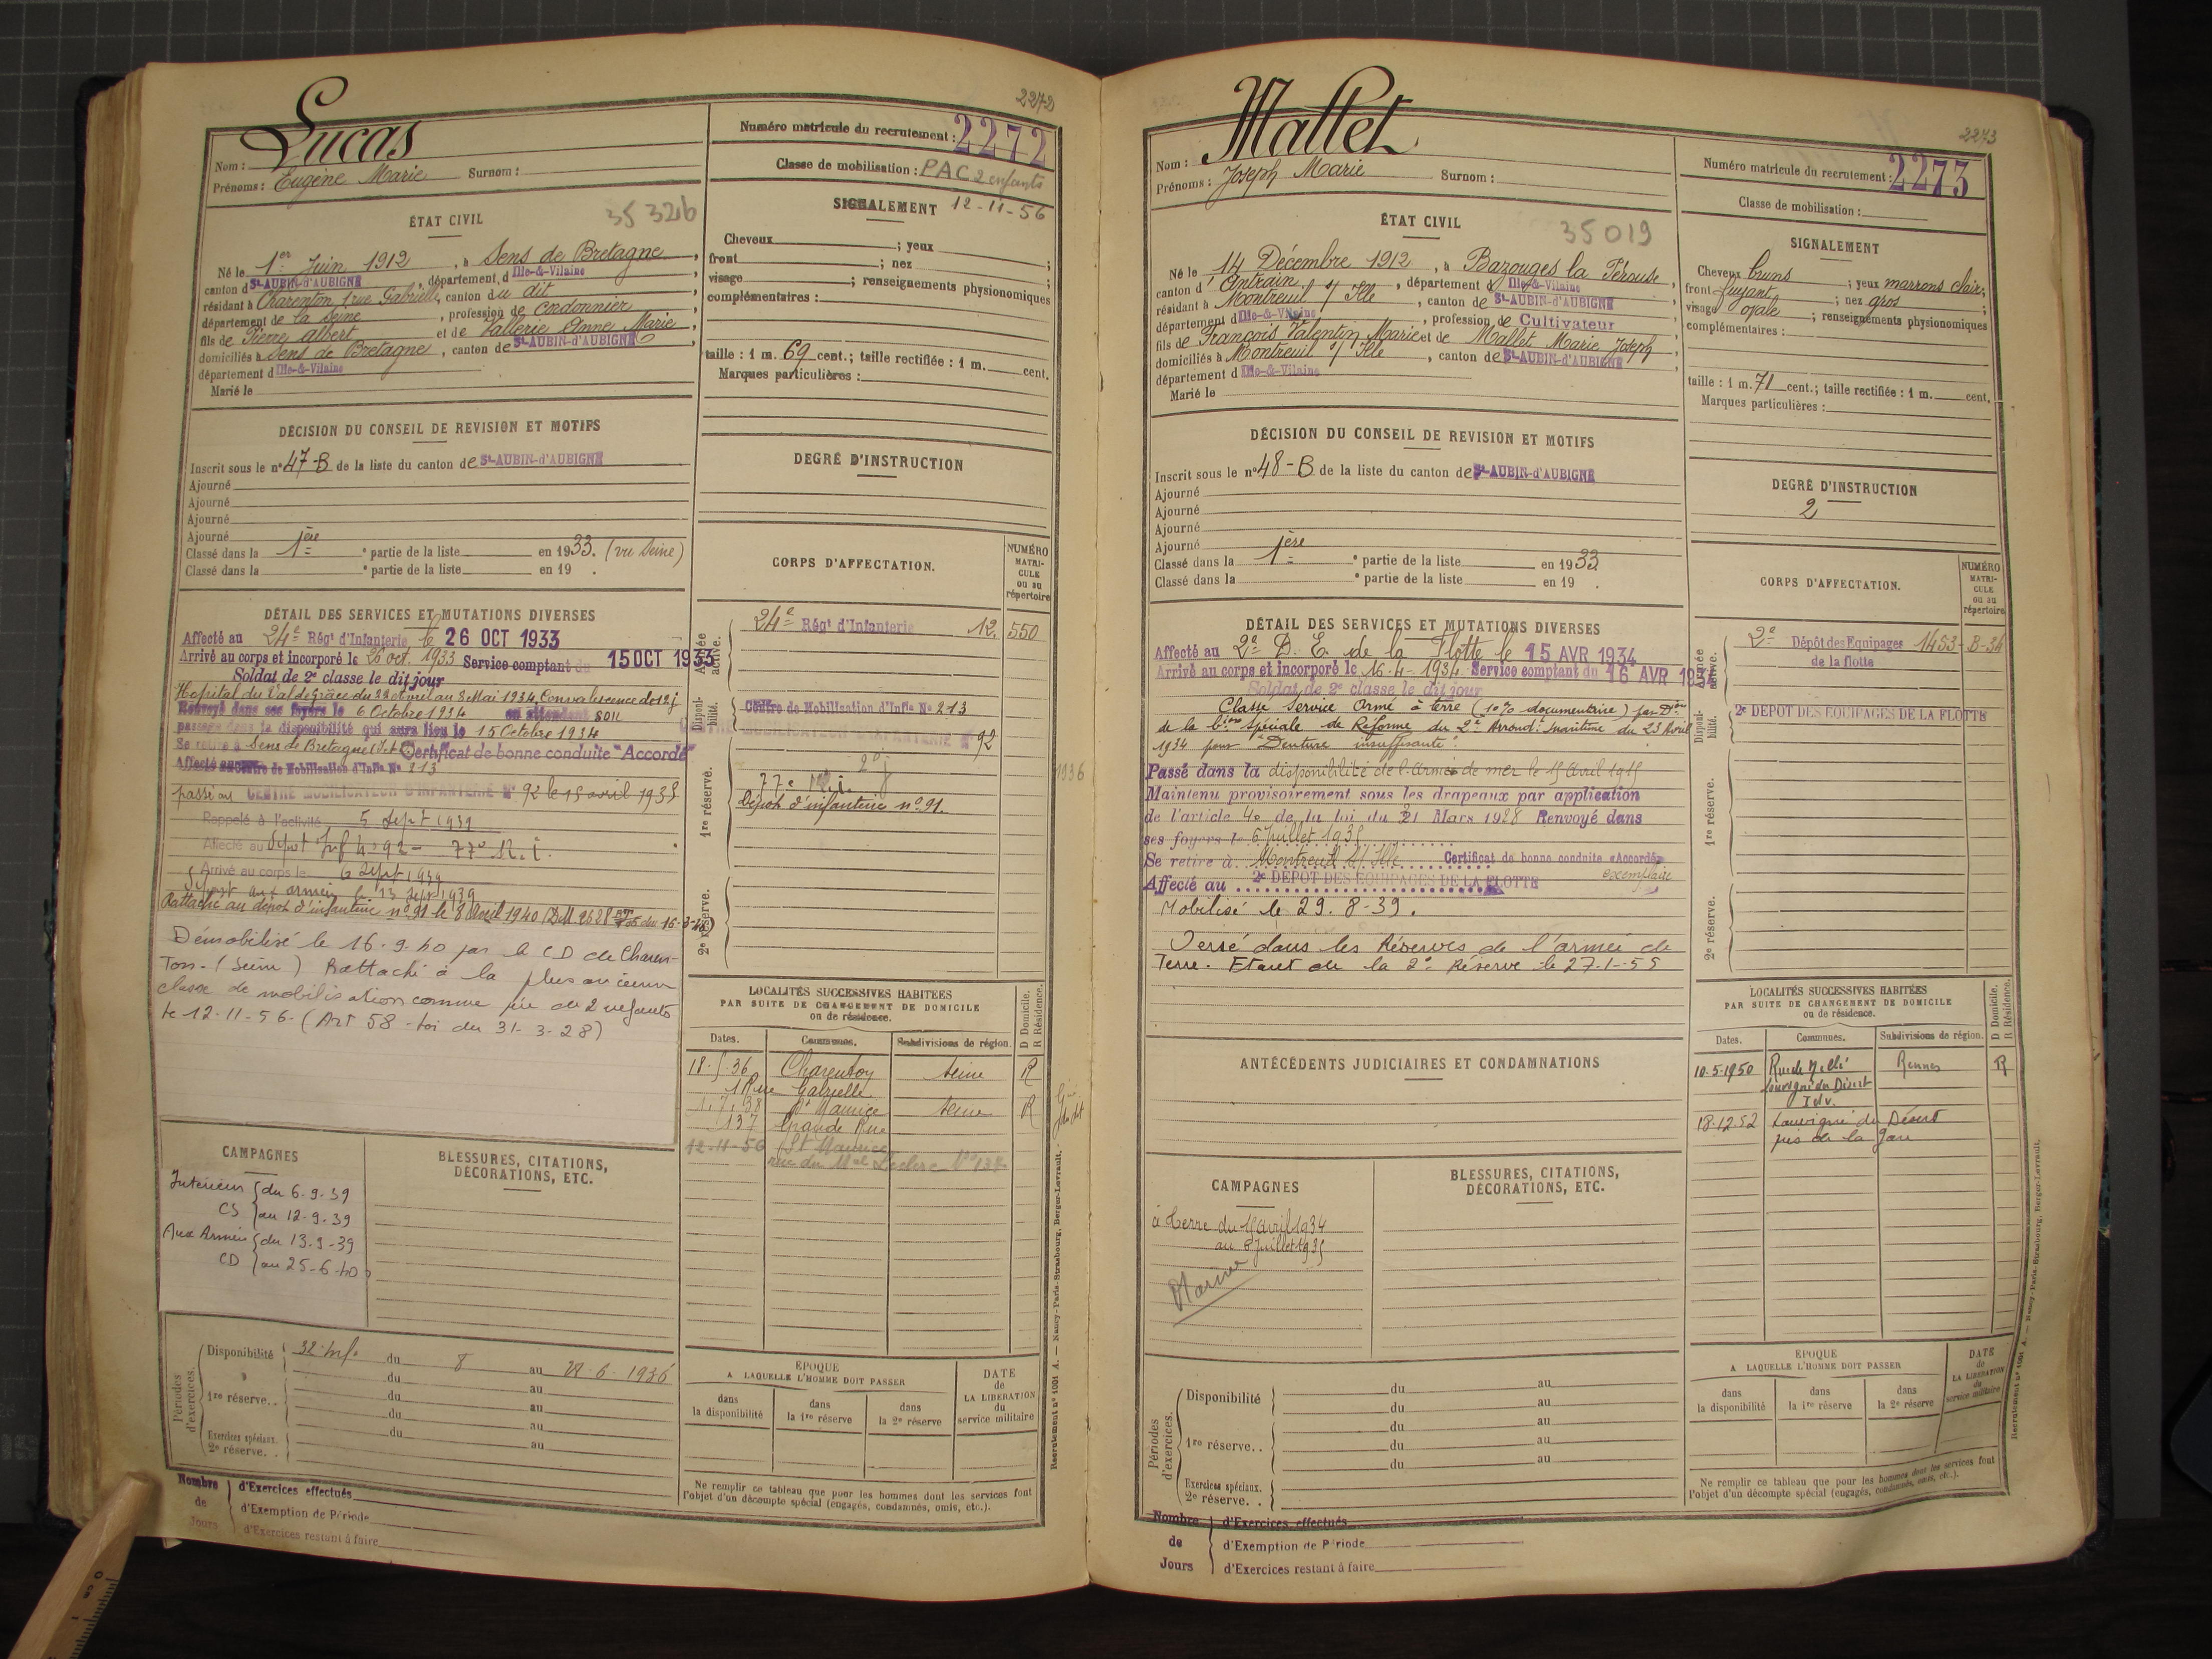 2272
Lucas
Nom :
Prénoms : Eugène Marie Surnom :
Numéro matricule du recrutement : 2272
Classe de mobilisation : PAC 2 enfants
12-11-56
ÉTAT CIVIL
35326
Né le 1er Juin 1912, à Sens de Bretagne,
canton d St-AUBIN-d'AUBIGNÉ, département d Ille-&-Vilaine
résidant à Charenton 1 rue Gabrielle, canton du dit,
département de la Seine, profession de Cordonnier,
fils de Pierre Albert et de Vallerie Anne Marie,
domiciliés à Sens de Bretagne, canton de St-AUBIN-d'AUBIGNÉ,
département d Ille-&-Vilaine
Marié le
SIGNALEMENT
Cheveux ; yeux ;
front ; nez ;
visage ; renseignements physionomiques
complémentaires :
taille : 1 m. 69 cent.; taille rectifiée : 1 m. cent.
Marques particulières :
DÉCISION DU CONSEIL DE REVISION ET MOTIFS
Inscrit sous le nº 47-B de la liste du canton de St-AUBIN-d'AUBIGNÉ
Ajourné
Ajourné
Ajourné
Ajourné
Classé dans la 1ère partie de la liste en 1933. (vu Seine)
Classé dans la e partie de la liste en 19 .
DEGRÉ D'INSTRUCTION
DÉTAIL DES SERVICES ET MUTATIONS DIVERSES
Affecté au 24e Régt d'Infanterie le 26 OCT 1933
Arrivé au corps et incorporé le 26 oct. 1933 Service comptant du 15 OCT 1933
Soldat de 2e classe le dit jour
Hopital du Val de Grâce du 22 Avril au 8 Mai 1934. Convalescence de 12 j
Renvoyé dans ses foyers le 6 Octobre 1934 en attendant son
passage dans la disponibilité qui aura lieu le 15 Octobre 1934
Se retire à Sens de Bretagne Certificat de bonne conduite "Accordé"
Affecté au Centre de Mobilisation d'Infie No 213
passé au CENTRE MOBILISATEUR D'INFANTERIE No 92 le 15 avril 1935
Rappelé à l'activité 5 Sept 1939
Affecté au Dépot Inf No 92 - 77e R.I.
Arrivé au corps le 6 Sept 1939
Départ aux armées le 13 Sept 1939
Rattaché au dépot d'infanterie nº 91 le 8 Avril 1940
Démobilisé le 16-9-40 par le CD de Charen-
Ton. (Seine) Rattaché à la plus ancienne
classe de mobilisation comme père de 2 enfants
le 12-11-56 - (Art 58 - loi du 31-3-28)
CORPS D'AFFECTATION.
NUMÉRO MATRICULE ou au répertoire
Armée active.
24e Régt d'Infanterie 12. 550
Disponibilité.
Centre de Mobilisation d'Infie No 213
CENTRE MOBILISATEUR D'INFANTERIE No 92
1re réserve.
77e R.I.
Dépot d'infanterie nº 91.
1936
2e réserve.
LOCALITÉS SUCCESSIVES HABITÉES
PAR SUITE DE CHANGEMENT DE DOMICILE
ou de résidence.
D Domicile. R Résidence.
Dates. Communes. Subdivisions de région.
18-5-36 Charenton Seine R
1 Rue Gabrielle
1.7.38 St Maurice Seine R
137 Grande Rue
12-11-56 St Maurice
rue du Mal Leclerc No 137
CAMPAGNES
Intérieur du 6-9-39
CS au 12-9-39
Aux Armées du 13-9-39
CD au 25-6-40
BLESSURES, CITATIONS,
DÉCORATIONS, ETC.
Périodes d'exercices.
Disponibilité 32e Inf. du 8 au 28-6-1936
du au
1re réserve.. du au
du au
du au
Exercices spéciaux.
2e réserve. . au
ÉPOQUE
A LAQUELLE L'HOMME DOIT PASSER
dans la disponibilité
dans la 1re réserve
dans la 2e réserve
DATE de LA LIBÉRATION du service militaire
Ne remplir ce tableau que pour les hommes dont les services font
l'objet d'un décompte spécial (engagés, condamnés, omis, etc.).
Nombre de Jours
d'Exercices effectués
d'Exemption de Période
d'Exercices restant à faire
Recrutement nº 1001 A. — Nancy-Paris-Strasbourg, Berger-Levrault.
2273
Mallet
Nom :
Prénoms : Joseph Marie Surnom :
Numéro matricule du recrutement : 2273
Classe de mobilisation :
ÉTAT CIVIL
35019
Né le 14 Décembre 1912, à Bazouges la Pérouse,
canton d'Antrain, département d Ille-&-Vilaine
résidant à Montreuil s/ Ille, canton de St-AUBIN-d'AUBIGNÉ
département d Ille-&-Vilaine, profession de Cultivateur
fils de François Valentin Marie et de Mallet Marie Joseph,
domiciliés à Montreuil s/ Ille, canton de St-AUBIN-d'AUBIGNÉ,
département d Ille-&-Vilaine
Marié le
SIGNALEMENT
Cheveux bruns ; yeux marrons clairs;
front fuyant ; nez gros ;
visage ovale ; renseignements physionomiques
complémentaires :
taille : 1 m. 71 cent.; taille rectifiée : 1 m. cent.
Marques particulières :
DÉCISION DU CONSEIL DE REVISION ET MOTIFS
Inscrit sous le nº 48-B de la liste du canton de St-AUBIN-d'AUBIGNÉ
Ajourné
Ajourné
Ajourné
Ajourné
Classé dans la 1ère partie de la liste en 1933
Classé dans la e partie de la liste en 19 .
DEGRÉ D'INSTRUCTION
2
DÉTAIL DES SERVICES ET MUTATIONS DIVERSES
Affecté au 2e D. E. de la Flotte le 15 AVR 1934
Arrivé au corps et incorporé le 16-4-1934 Service comptant du 16 AVR 1934
Soldat de 2e classe le dit jour
Classé Service Armé à terre (10% documentrice) par Don
de la Cion Spéciale de Réforme du 2e Arrondt maritime du 23 Avril
1934 pour "Denture insuffisante".
Passé dans la disponibilité de l'Armée de mer le 15 Avril 1935
Maintenu provisoirement sous les drapeaux par application
de l'article 40 de la loi du 31 Mars 1928 Renvoyé dans
ses foyers le 6 Juillet 1935
Se retire à Montreuil s/ Ille Certificat de bonne conduite «Accordé»
exemplaire
Affecté au 2e DEPOT DES EQUIPAGES DE LA FLOTTE
Mobilisé le 29.8-39.
Versé dans les Réserves de l'armée de
Terre. Etant de la 2e Réserve le 27-1-55
CORPS D'AFFECTATION.
NUMÉRO MATRICULE ou au répertoire
Armée active.
2e Dépôt des Equipages de la flotte 1453-B-34
Disponibilité.
2e DEPOT DES EQUIPAGES DE LA FLOTTE
1re réserve.
2e réserve.
ANTÉCÉDENTS JUDICIAIRES ET CONDAMNATIONS
LOCALITÉS SUCCESSIVES HABITÉES
PAR SUITE DE CHANGEMENT DE DOMICILE
ou de résidence.
D Domicile. R Résidence.
Dates. Communes. Subdivisions de région.
10-5-1950 Rue de Rennes R
Louvigné du Désert
I et V.
18-12-52 Louvigné du Désert
près de la Gare
CAMPAGNES
à Terre du 15 avril 1934
au 6 Juillet 1935
Marine
BLESSURES, CITATIONS,
DÉCORATIONS, ETC.
Périodes d'exercices.
Disponibilité du au
du au
1re réserve.. du au
du au
du au
Exercices spéciaux.
2e réserve. .
ÉPOQUE
A LAQUELLE L'HOMME DOIT PASSER
dans la disponibilité
dans la 1re réserve
dans la 2e réserve
DATE de LA LIBÉRATION du service militaire
Ne remplir ce tableau que pour les hommes dont les services font
l'objet d'un décompte spécial (engagés, condamnés, omis, etc.).
Nombre de Jours
d'Exercices effectués
d'Exemption de Période
d'Exercices restant à faire
Recrutement nº 1001 A. — Nancy-Paris-Strasbourg, Berger-Levrault.